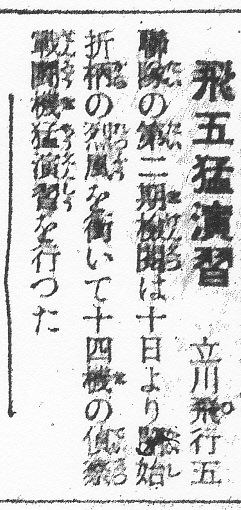 飛五猛演習 立川飛行五
聯隊の第二期検閲は十日より開始
折柄の烈風を衝いて十四機の偵察
戰鬪機猛演習を行つた